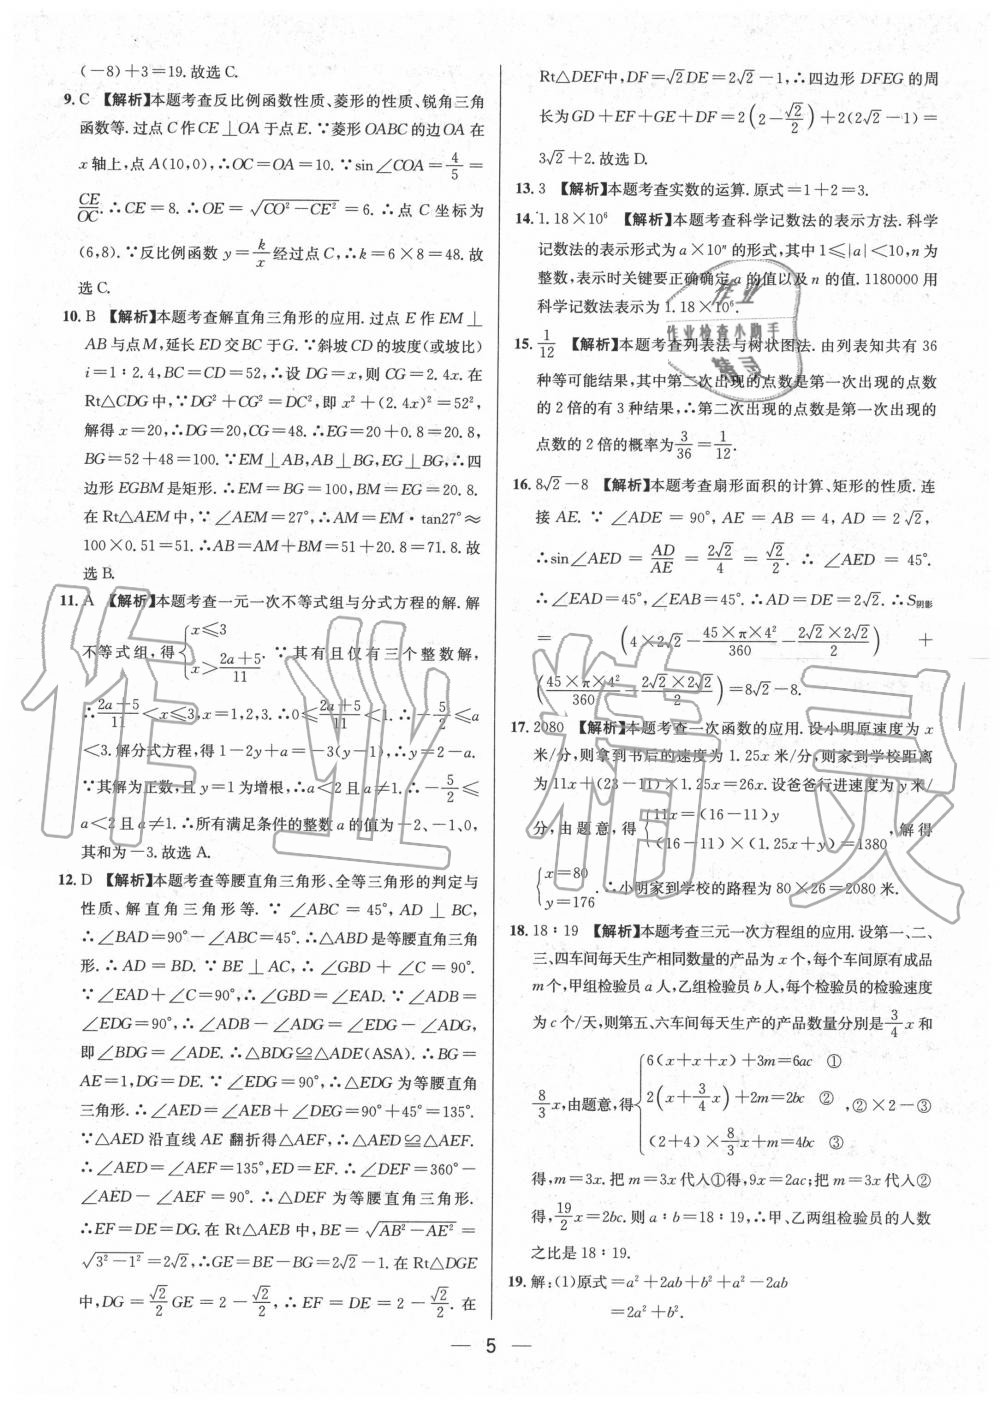 (-8)+3=19.故选C.
9. C 【解析】本题考查反比例函数性质、菱形的性质、锐角三角
函数等.过点C作CE⊥OA于点E.∵菱形OABC的边OA在
x轴上,点A(10,0),∴OC=OA=10.∵sin∠COA=4/5=
CE/OC.∴CE=8.∴OE=√(CO²-CE²)=6.∴点C坐标为
(6,8).∵反比例函数y=k/x经过点C,∴k=6×8=48.故
选C.
10. B 【解析】本题考查解直角三角形的应用.过点E作EM⊥
AB与点M,延长ED交BC于G.∵斜坡CD的坡度(或坡比)
i=1:2.4,BC=CD=52,∴设DG=x,则CG=2.4x.在
Rt△CDG中,∵DG²+CG²=DC²,即x²+(2.4x)²=52²,
解得x=20,∴DG=20,CG=48.∴EG=20+0.8=20.8,
BG=52+48=100.∵EM⊥AB,AB⊥BG,EG⊥BG,∴四
边形EGBM是矩形.∴EM=BG=100,BM=EG=20.8.
在Rt△AEM中,∵∠AEM=27°,∴AM=EM·tan27°≈
100×0.51=51.∴AB=AM+BM=51+20.8=71.8.故
选B.
11. A 【解析】本题考查一元一次不等式组与分式方程的解.解
不等式组,得{x≤3 x>(2a+5)/11.∵其有且仅有三个整数解,
∴(2a+5)/11<x≤3,x=1,2,3.∴0≤(2a+5)/11<1.∴-5/2≤a
<3.解分式方程,得1-2y+a=-3(y-1),∴y=2-a.
∵其解为正数,且y=1为增根,∴a<2且a≠1.∴-5/2≤
a<2且a≠1.∴所有满足条件的整数a的值为-2、-1、0,
其和为-3.故选A.
12. D 【解析】本题考查等腰直角三角形、全等三角形的判定与
性质、解直角三角形等.∵∠ABC=45°,AD⊥BC,
∴∠BAD=90°-∠ABC=45°.∴△ABD是等腰直角三角
形.∴AD=BD.∵BE⊥AC,∴∠GBD+∠C=90°.
∵∠EAD+∠C=90°,∴∠GBD=∠EAD.∵∠ADB=
∠EDG=90°,∴∠ADB-∠ADG=∠EDG-∠ADG,
即∠BDG=∠ADE.∴△BDG≌△ADE(ASA).∴BG=
AE=1,DG=DE.∵∠EDG=90°,∴△EDG为等腰直角
三角形.∴∠AED=∠AEB+∠DEG=90°+45°=135°.
∵△AED沿直线AE翻折得△AEF,∴△AED≌△AEF.
∴∠AED=∠AEF=135°,ED=EF.∴∠DEF=360°-
∠AED-∠AEF=90°.∴△DEF为等腰直角三角形.
∴EF=DE=DG.在Rt△AEB中,BE=√(AB²-AE²)=
√(3²-1²)=2√2,∴GE=BE-BG=2√2-1.在Rt△DGE
中,DG=√2/2GE=2-√2/2,∴EF=DE=2-√2/2.在
Rt△DEF中,DF=√2DE=2√2-1,∴四边形DFEG的周
长为GD+EF+GE+DF=2(2-√2/2)+2(2√2-1)=
3√2+2.故选D.
13. 3 【解析】本题考查实数的运算.原式=1+2=3.
14. 1.18×10⁶ 【解析】本题考查科学记数法的表示方法.科学
记数法的表示形式为a×10ⁿ的形式,其中1≤|a|<10,n为
整数,表示时关键要正确确定a的值以及n的值.1180000用
科学记数法表示为1.18×10⁶.
15. 1/12 【解析】本题考查列表法与树状图法.由列表知共有36
种等可能结果,其中第二次出现的点数是第一次出现的点数
的2倍的有3种结果,∴第二次出现的点数是第一次出现的
点数的2倍的概率为3/36=1/12.
16. 8√2-8 【解析】本题考查扇形面积的计算、矩形的性质.连
接AE.∵∠ADE=90°,AE=AB=4,AD=2√2,
∴sin∠AED=AD/AE=2√2/4=√2/2.∴∠AED=45°.
∴∠EAD=45°,∠EAB=45°.∴AD=DE=2√2.∴S阴影
=(4×2√2-(45×π×4²)/360-(2√2×2√2)/2)+
((45×π×4²)/360-(2√2×2√2)/2)=8√2-8.
17. 2080 【解析】本题考查一次函数的应用.设小明原速度为x
米/分,则拿到书后的速度为1.25x米/分,则家到学校距离
为11x+(23-11)×1.25x=26x.设爸爸行进速度为y米/
分,由题意,得{11x=(16-11)y (16-11)×(1.25x+y)=1380,解得
{x=80 y=176.∴小明家到学校的路程为80×26=2080米.
18. 18:19 【解析】本题考查三元一次方程组的应用.设第一、二、
三、四车间每天生产相同数量的产品为x个,每个车间原有成品
m个,甲组检验员a人,乙组检验员b人,每个检验员的检验速度
为c个/天,则第五、六车间每天生产的产品数量分别是3/4x和
8/3x,由题意,得{6(x+x+x)+3m=6ac ① 2(x+3/4x)+2m=2bc ② (2+4)×8/3x+m=4bc ③,②×2-③
得,m=3x.把m=3x代入①得,9x=2ac;把m=3x代入②
得,19/2x=2bc.则a:b=18:19,∴甲、乙两组检验员的人数
之比是18:19.
19. 解:(1)原式=a²+2ab+b²+a²-2ab
=2a²+b².
— 5 —
作业
作业检查小助手
精灵
作业精灵